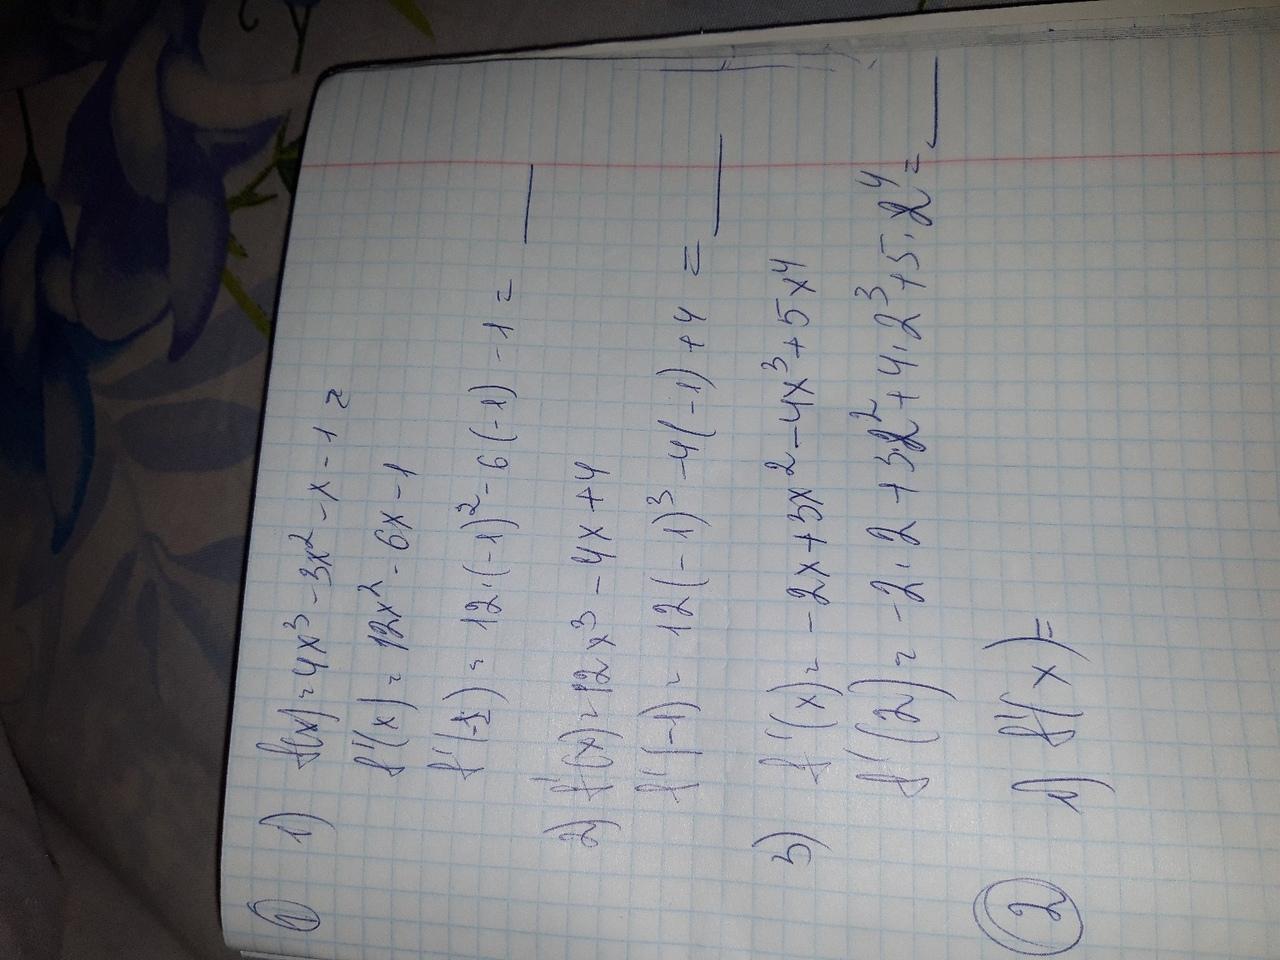 ① 1) f(x) = 4x³ - 3x² - x - 1 =
f'(x) = 12x² - 6x - 1
f'(-1) = 12·(-1)² - 6(-1) - 1 = ___
2) f'(x) = 12x³ - 4x + 4
f'(-1) = 12(-1)³ - 4(-1) + 4 = ___
3) f'(x) = -2x + 3x² - 4x³ + 5x⁴
f'(2) = -2·2 + 3·2² + 4·2³ + 5·2⁴ = ___
② 1) f'(x) =